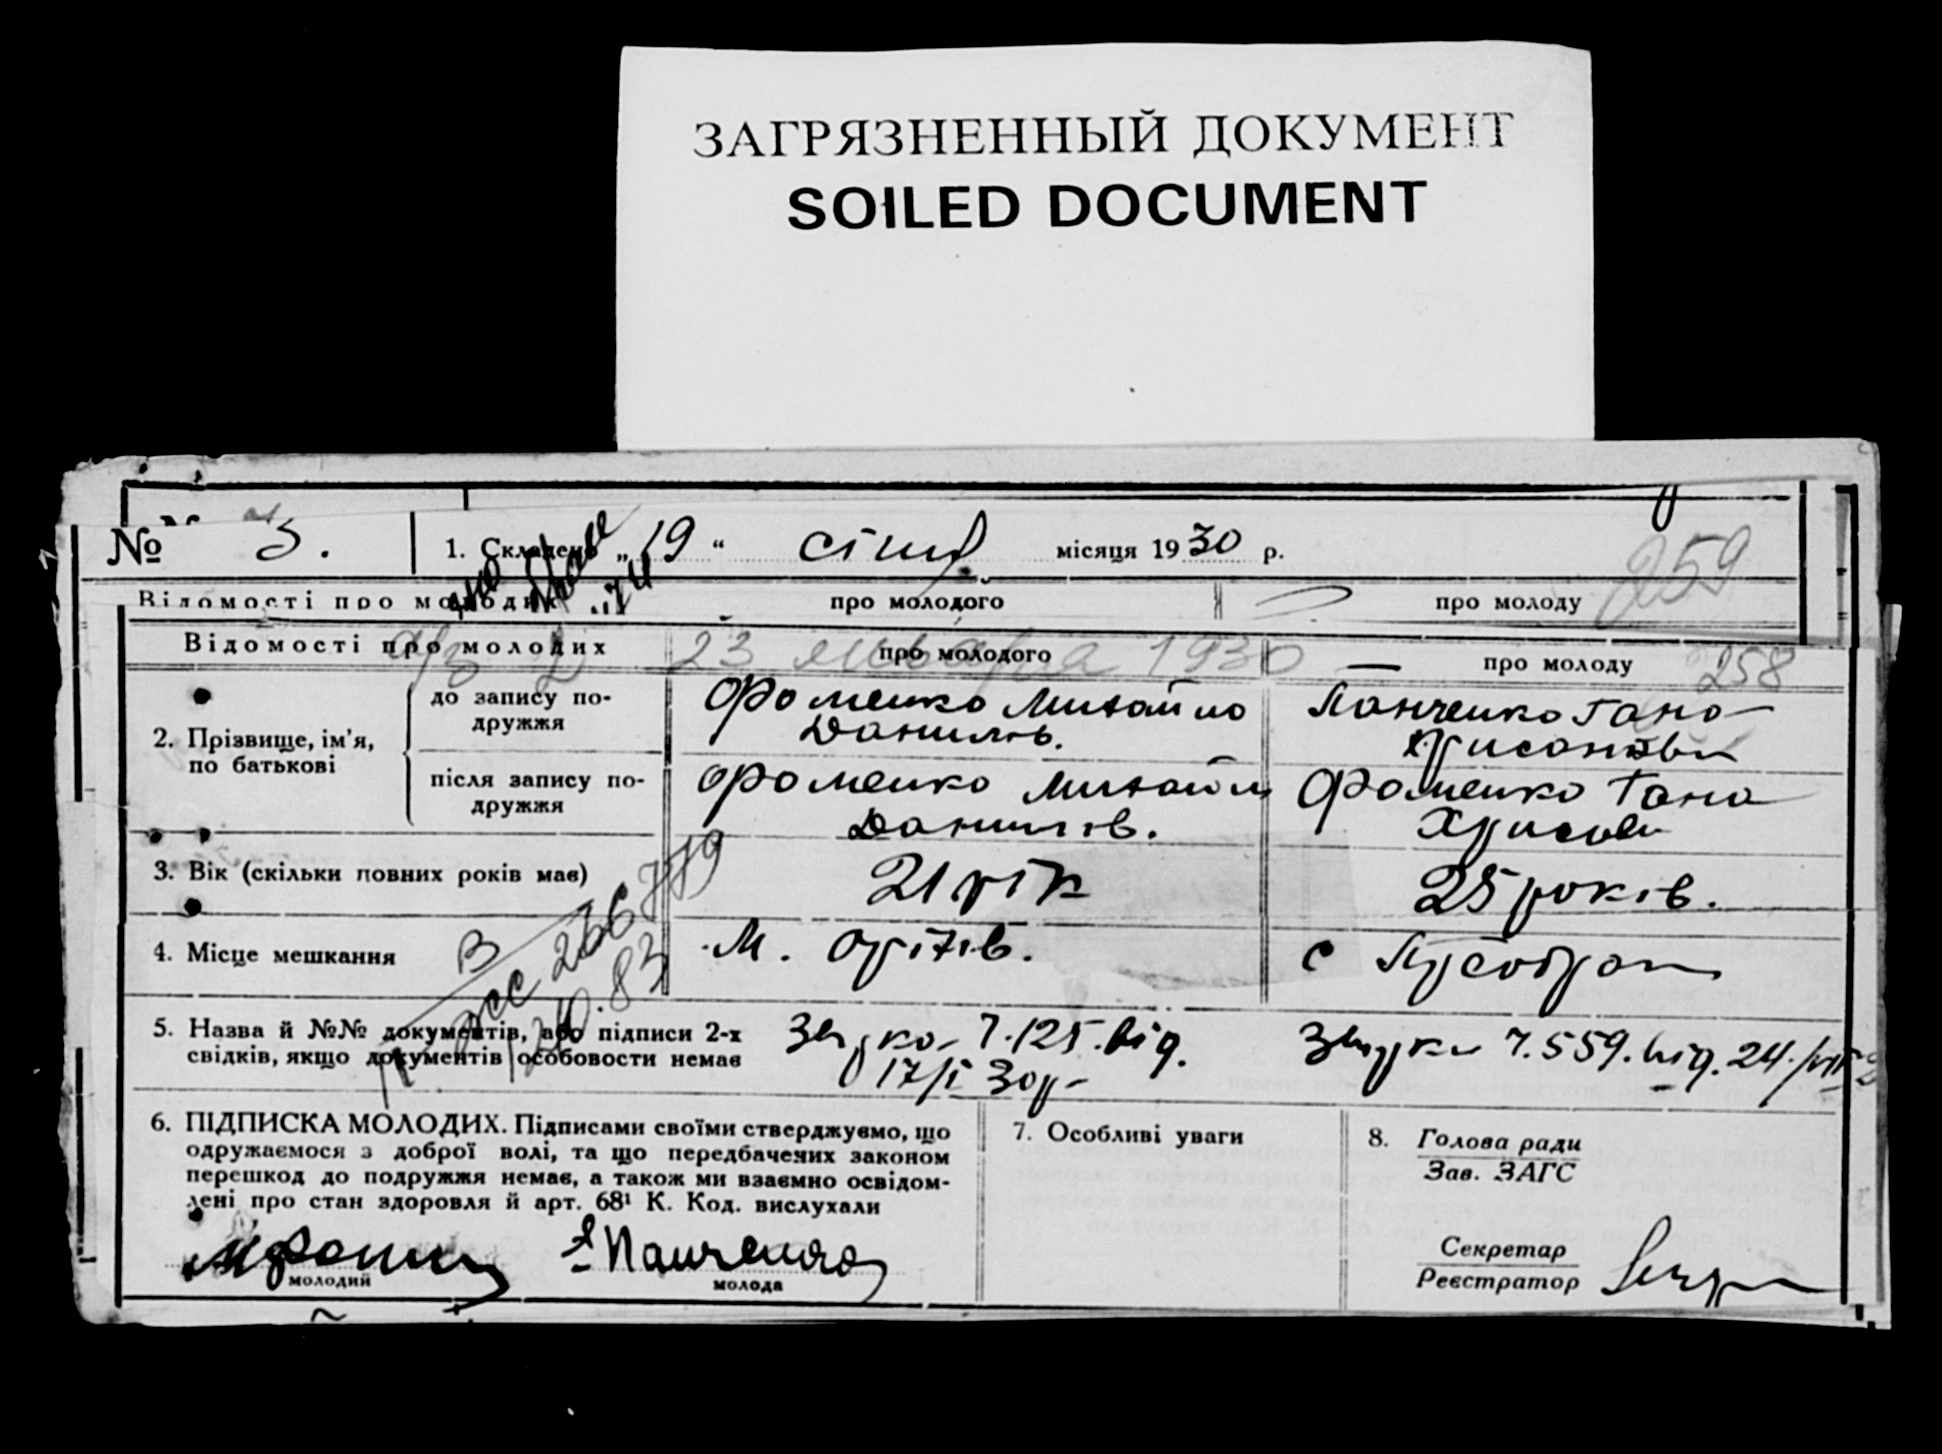 ЗАГРЯЗНЕННЫЙ ДОКУМЕНТ
SOILED DOCUMENT
№ 3. 1. Складено „19“ січня місяця 1930 р.
259
Відомості про молодих про молодого про молоду
23 января 1930
258
Відомості про молодих про молодого про молоду
2. Прізвище, ім'я, по батькові
до запису подружжя
Фоменко Михайло
Данилів.
Панченко Гана
після запису подружжя
Фоменко Михайло
Данилів.
Фоменко Гана
3. Вік (скільки повних років має) 21 рік 25 років.
4. Місце мешкання м. Оріхів. с
В
266779
83
5. Назва й №№ документів, або підписи 2-х
свідків, якщо документів особовости немає
ч. 125. від.
17/I 30р.
ч. 559. від. 24
6. ПІДПИСКА МОЛОДИХ. Підписами своїми стверджуємо, що
одружаємося з доброї волі, та що передбачених законом
перешкод до подружжя немає, а також ми взаємно освідом-
лені про стан здоровля й арт. 68¹ К. Код. вислухали
молодий
Панченко
молода
7. Особливі уваги
8. Голова ради
Зав. ЗАГС
Секретар
Реєстратор